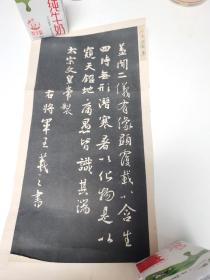 蓋聞二儀有像顯覆載以含生
四時無形潛寒暑以化物是以
窺天鑑地庸愚皆識其端
太宗文皇帝製
右將軍王羲之書
纯牛奶